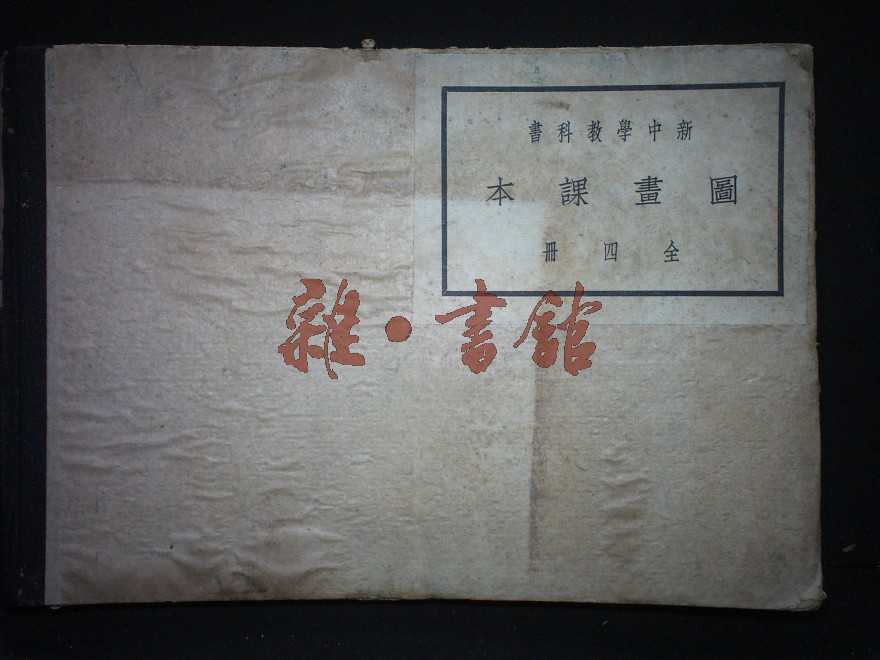 新中學教科書
圖畫課本
全四冊
雜·書館